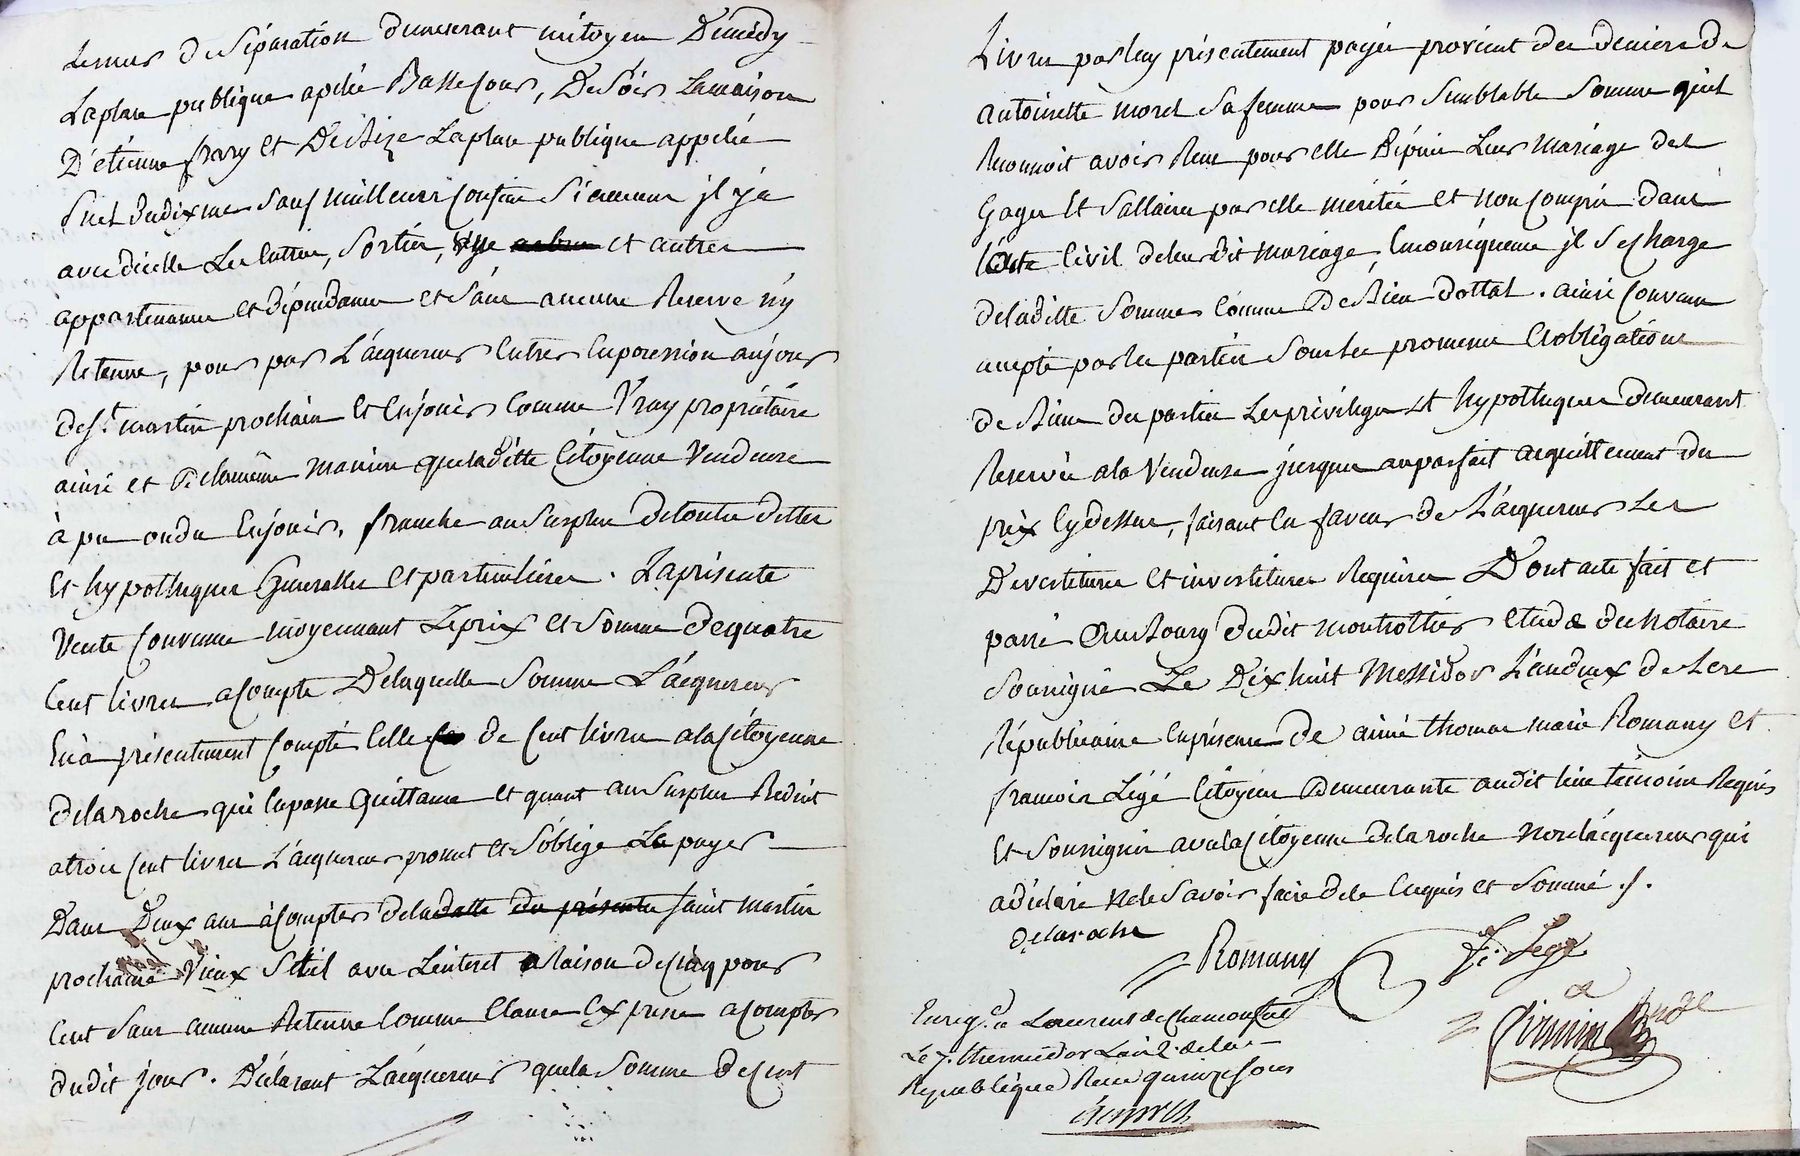 Le mur de Séparation demeurant mitoyen De midy
La place publique apelée Basse Cour, De Soir La maison
D'étienne frary et De Bize La place publique appelée
Suel dudix mes Sauf meilleurs Confins Si aucuns jl y a
avec dicelle Les Entrées, Sorties, et autres
appartenances et dépendances et Sans aucune Reserve n'y
Retenue, pour par L'acquereur Entrer En possession au jour
de St. martin prochain Et En jouir Comme Vray propriétaire
ainsi et De la même maniere que laditte Citoyenne Vendeuse
à pu ou du En jouir, franche au Surplus De toutes Dettes
Et hypotheques Generalles et particulieres. La présente
Vente Convenue moyennant Le prix et Somme De quatre
Cent livres acompte De laquelle Somme L'acquereur
En à présentement Compté Celle de Cent livres a la Citoyenne
Delaroche qui En passe Quittance et quant au Surplus Reduit
a trois Cent livres L'acquereur promet et S'oblige La payer
Dans Deux ans à Compter de la datte du présente Saint martin
prochaine Vieux Stil avec L'interet a Raison De Cinq pour
Cent Sans aucune Retenue Comme Clause Expresse a Compter
dudit jour. Déclarant L'acquereur que la Somme de Cent
Livres par luy présentement payée provient des deniers de
antoinette morel Sa femme pour Semblable Somme qu'il
Reconnoit avoir Reçue pour elle Depuis Leur Mariage des
Gages Et Sallaires par elle merités et non Compris Dans
l'acte Civil de leur Dit Mariage, En consequence jl Se Charge
de laditte Somme Comme De Bien Dottal. ainsi Convenu
accepté par les parties Sous les promesses Et obligations
de Biens des parties Les privileges et hypotheques Demeurant
Reservés a la Vendeuse jusques au parfait acquittement du
prix Cy dessus, faisant En faveur de L'acquereur Les
Devestitures et investitures Requises Dont acte fait et
passé Au Bourg Dudit montrottier etude du Notaire
Soussigné Le Dix huit Messidor L'an deux de L'ere
Républicaine En présence De aimé thomas marie Romany et
françois Légé Citoyens Demeurants audit lieu témoins Requis
Et Soussignés avec la Citoyenne Delaroche Non L'acquereur qui
a déclaré ne le Savoir faire de ce Enquis et Sommé ./.
delaroche
Romany
F. Legé
Enreg.é a Laurent de Chamousset
Le 7. thermidor L'an 2. de la
Republique Reçu quinze sous